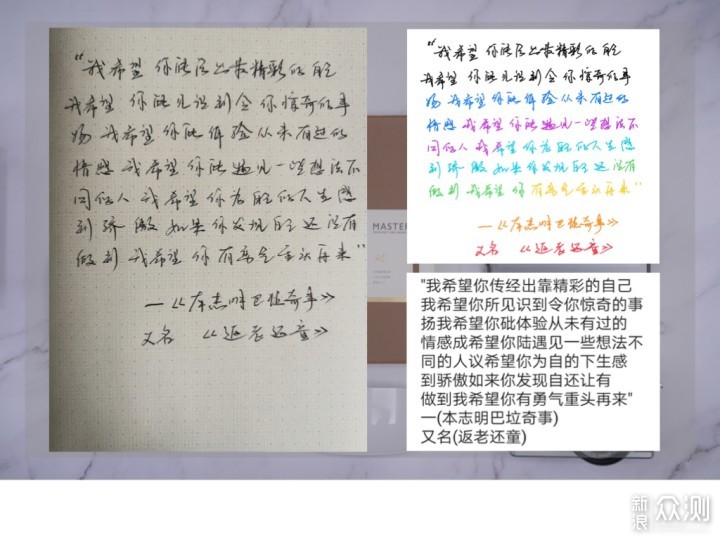 "我希望 你能活出最精彩的自己
我希望 你能见识到令你惊奇的事
物 我希望你能体验从未有过的
情感 我希望你能遇见一些想法不
同的人 我希望你为自己的人生感
到骄傲 如果你发现自己还没有
做到 我希望 你有勇气重头再来"
—《本杰明巴顿奇事》
又名 《返老还童》
MASTER
"我希望 你能活出最精彩的自己
我希望 你能见识到令你惊奇的事
物 我希望你能体验从未有过的
情感 我希望你能遇见一些想法不
同的人 我希望你为自己的人生感
到骄傲 如果你发现自己还没有
做到 我希望 你有勇气重头再来"
—《本杰明巴顿奇事》
又名 《返老还童》
"我希望你传经出靠精彩的自己
我希望你所见识到令你惊奇的事
扬我希望你砒体验从未有过的
情感成希望你陆遇见一些想法不
同的人议希望你为自的下生感
到骄傲如来你发现自还让有
做到我希望你有勇气重头再来"
一(本志明巴垃奇事)
又名(返老还童)
新浪众测